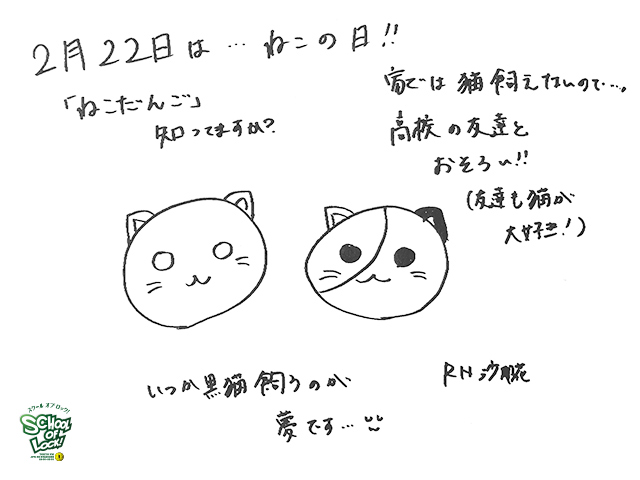 2月22日は…ねこの日!!
「ねこだんご」
知ってますか?
家では猫飼えないので…。
高校の友達と
おそろい!!
(友達も猫が
大好き!)
いつか黒猫飼うのが
夢です…
RN 沙
スクール オブ ロック!
SCHOOL
OF
LOCK!